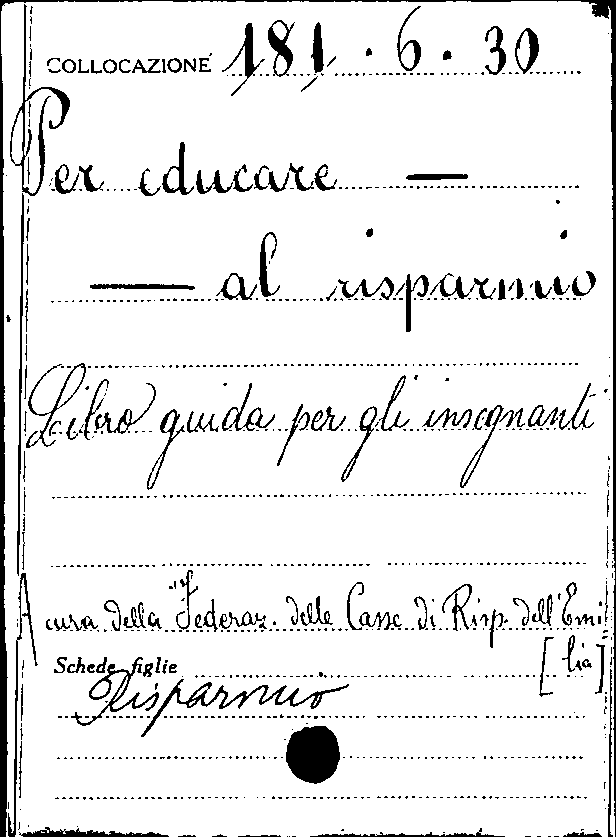 COLLOCAZIONE 181.6.30
Per educare —
— al risparmio
Libro guida per gli insegnanti
A cura della Federaz. delle Casse di Risp. dell'Emi
[lia]
Schede figlie
Risparmio